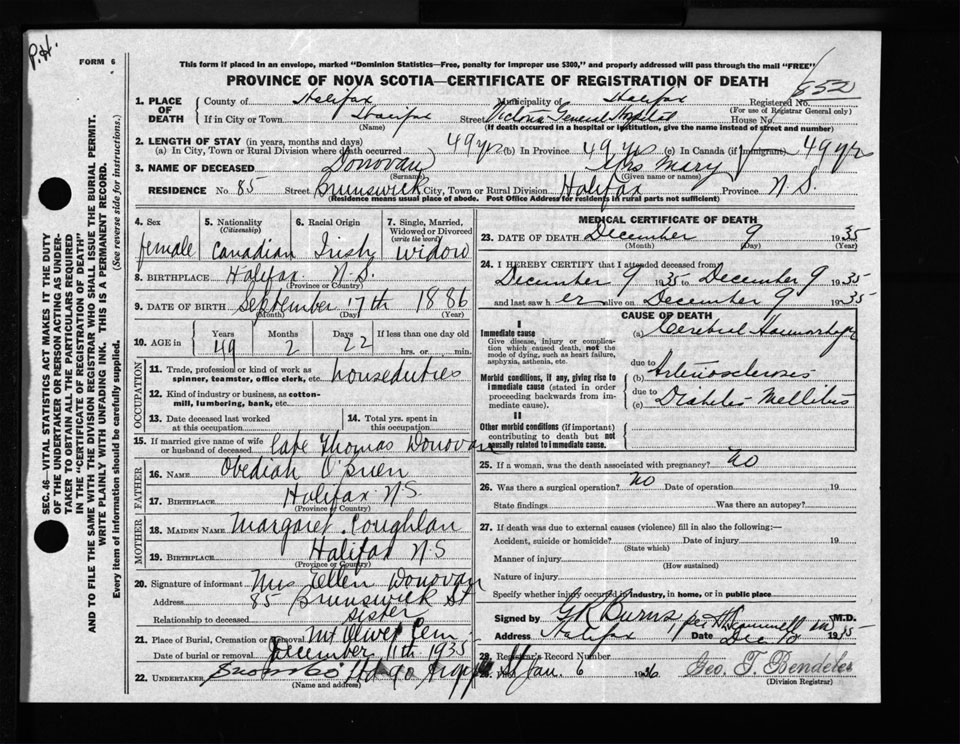 P.H.
FORM 6
This form if placed in an envelope, marked "Dominion Statistics—Free, penalty for improper use $300," and properly addressed will pass through the mail "FREE"
PROVINCE OF NOVA SCOTIA—CERTIFICATE OF REGISTRATION OF DEATH
852
1. PLACE OF DEATH County of Halifax Municipality of Halifax Registered No.
(For use of Registrar General only)
If in City or Town Halifax Street Victoria General Hospital House No.
(Name) (If death occurred in a hospital or institution, give the name instead of street and number)
2. LENGTH OF STAY (in years, months and days)
(a) In City, Town or Rural Division where death occurred 49 yr (b) In Province 49 yrs (c) In Canada (if immigrant) 49 yr
3. NAME OF DECEASED Donovan Mrs Mary
(Surname) (Given name or names)
RESIDENCE No. 85 Street Brunswick City, Town or Rural Division Halifax Province N S.
(Residence means usual place of abode. Post Office Address for residents in rural parts not sufficient)
4. Sex female
5. Nationality (Citizenship) Canadian
6. Racial Origin Irish
7. Single, Married, Widowed or Divorced (write the word) widow
8. BIRTHPLACE Halifax N.S.
(Province or Country)
9. DATE OF BIRTH September 17th 1886
(Month) (Day) (Year)
10. AGE in Years 49 Months 2 Days 22 If less than one day old hrs. or min.
OCCUPATION
11. Trade, profession or kind of work as spinner, teamster, office clerk, etc. houseduties
12. Kind of industry or business, as cotton-mill, lumbering, bank, etc.
13. Date deceased last worked at this occupation
14. Total yrs. spent in this occupation
15. If married give name of wife or husband of deceased late Thomas Donovan
FATHER
16. NAME Obediah O'Brien
17. BIRTHPLACE Halifax N S
(Province or Country)
MOTHER
18. MAIDEN NAME Margaret Coughlan
19. BIRTHPLACE Halifax N S
(Province or Country)
20. Signature of informant Mrs Ellen Donovan
Address 85 Brunswick St
Relationship to deceased sister
21. Place of Burial, Cremation or Removal Mt Olivet Cem
Date of burial or removal December 11th 1935
22. UNDERTAKER Snow & Co Ltd 90 Argyle St
(Name and address)
MEDICAL CERTIFICATE OF DEATH
23. DATE OF DEATH December 9 1935
(Month) (Day) (Year)
24. I HEREBY CERTIFY that I attended deceased from
December 9 1935 to December 9 1935
and last saw her alive on December 9 1935
CAUSE OF DEATH
I
Immediate cause
Give disease, injury, or complication which caused death, not the mode of dying, such as heart failure, asphyxia, asthenia, etc.
(a) Cerebral Haemorrhage
due to
Morbid conditions, if any, giving rise to immediate cause (stated in order proceeding backwards from immediate cause).
(b) Arteriosclerosis
due to
(c) Diabetes Mellitus
II
Other morbid conditions (if important) contributing to death but not causally related to immediate cause.
25. If a woman, was the death associated with pregnancy? no
26. Was there a surgical operation? no Date of operation 19
State findings Was there an autopsy?
27. If death was due to external causes (violence) fill in also the following:—
Accident, suicide or homicide? Date of injury 19
(State which)
Manner of injury
(How sustained)
Nature of injury
Specify whether injury occurred in industry, in home, or in public place
Signed by G R Burns M.D.
Address Halifax Date Dec 10 1935
28. Registrar's Record Number
Jan. 6 1936 Geo. T. Bendeler
(Division Registrar)
SEC. 46—VITAL STATISTICS ACT MAKES IT THE DUTY
OF THE UNDERTAKER OR PERSON ACTING AS UNDER-
TAKER TO OBTAIN ALL THE PARTICULARS REQUIRED
IN THE "CERTIFICATE OF REGISTRATION OF DEATH"
AND TO FILE THE SAME WITH THE DIVISION REGISTRAR WHO SHALL ISSUE THE BURIAL PERMIT.
WRITE PLAINLY WITH UNFADING INK. THIS IS A PERMANENT RECORD.
Every item of information should be carefully supplied. (See reverse side for instructions.)